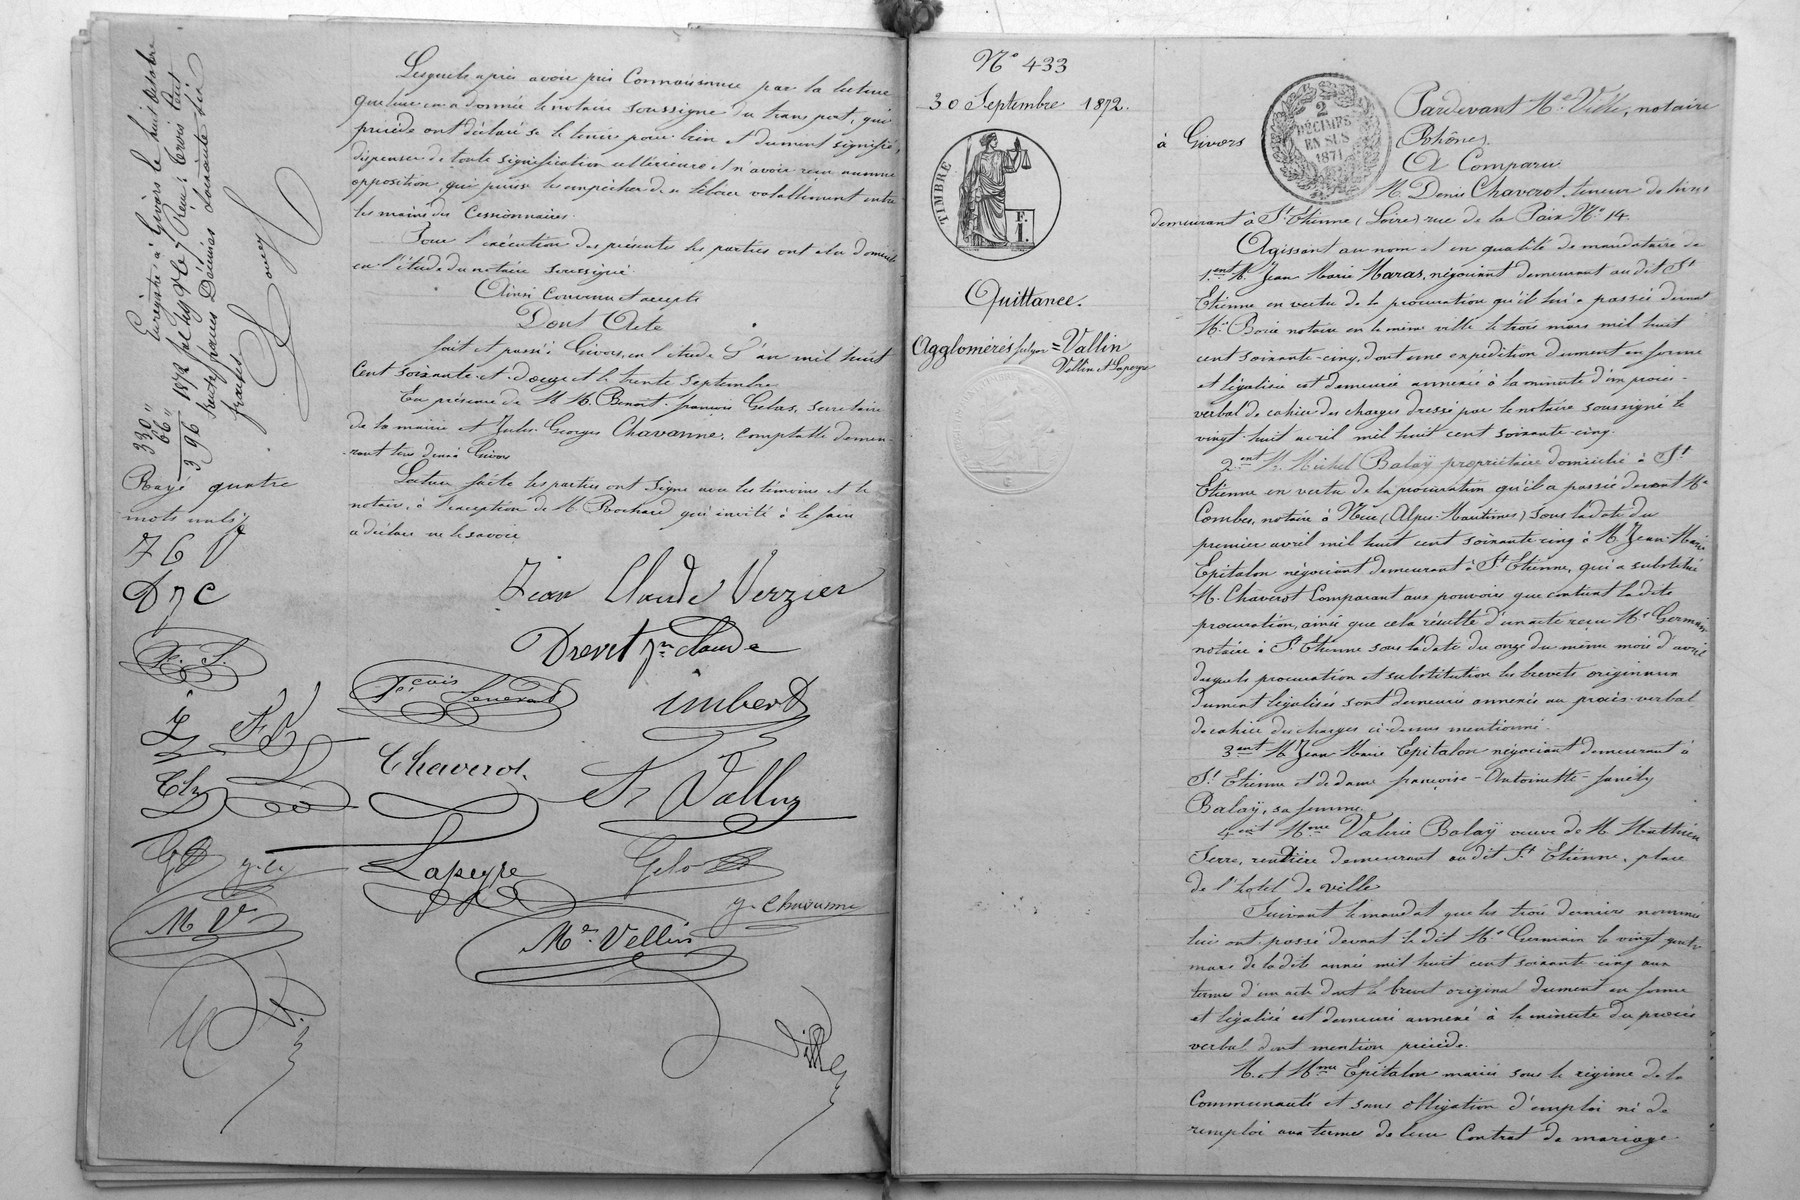 Lesquels après avoir pris Connaissance par la lecture
que leur en a donnée le notaire soussigné du transport, qui
précède ont déclaré se le tenir pour bien et dument signifié,
dispenser de toute signification ultérieure et n'avoir reçu aucune
opposition qui puisse les empêcher de se libérer valablement entre
les mains des Cessionnaires.
Pour l'exécution des présentes les parties ont élu domicile
en l'étude du notaire soussigné
Ainsi Convenu et accepté
Dont Acte
fait et passé à Givors, en l'étude L'an mil huit
Cent soixante-et-douze et le trente septembre
En présence de M. M. Benoit-françois Gelas, secrétaire
de la mairie et Jules Georges Chavanne, comptable demeu-
rant tous deux à Givors
Lecture faite les parties ont signé avec les témoins et le
notaire, à l'exception de M. Rochard qui invité à le faire
a déclaré ne le savoir
Jean Claude Verzier
Drevet Jn Claude
imbert
Chaverot
Lapeyre
J. Chavanne
Me Vellin
Enregistré à Givors le huit Octobre
1872
trente francs Décimes soixante six
francs
330 "
66 "
396
Rayé quatre
mots nuls
J C V
D J C
F. S.
M Ve
N° 433
30 Septembre 1872.
TIMBRE
F.
I.
Quittance.
Agglomérés = Vallin
Vellin et Lapeyre
2
DÉCIMES
EN SUS
1871
Pardevant Me Ville, notaire
à Givors Rhône,
A Comparu
M. Denis Chaverot, teneur de livres
demeurant à St Etienne (Loire) rue de la Paix N° 14.
Agissant au nom et en qualité de mandataire de
1ent M. Jean Marie Maras, négociant demeurant au dit St
Etienne en vertu de la procuration qu'il lui a passée devant
Me Borie notaire en la même ville le trois mars mil huit
cent soixante-cinq, dont une expédition dument en forme
et légalisée est demeurée annexée à la minute d'un procès-
verbal de cahier des charges dressé par le notaire soussigné le
vingt-huit avril mil huit cent soixante-cinq.
2ent M. Michel Balaÿ propriétaire domicilié à St
Etienne en vertu de la procuration qu'il a passée devant Me
Combes, notaire à Nice (Alpes-Maritimes) sous la date du
premier avril mil huit cent soixante cinq à M. Jean-Marie
Epitalon négociant demeurant à St Etienne, qui a substitué
M. Chaverot Comparant aux pouvoirs que contient la dite
procuration, ainsi que cela résulte d'un acte reçu Me Germain
notaire à St Etienne sous la date du onze du même mois d'avril
desquels procuration et substitution les brevets originaux
dument légalisés sont demeurés annexés au procès-verbal
de cahier des charges ci-dessus mentionné.
3ent M. Jean Marie Epitalon négociant demeurant à
St Etienne et de dame françoise-Antoinette-fanély
Balaÿ, sa femme.
4ent Mme Valérie Balaÿ veuve de M. Mathieu
Serre, rentière demeurant au dit St Etienne, place
de l'hotel de ville
Suivant le mandat que les trois derniers nommés
lui ont passé devant le dit Me Germain le vingt quatre
mars de la dite année mil huit cent soixante-cinq aux
termes d'un acte dont le brevet original dument en forme
et légalisé est demeuré annexé à la minute du procès
verbal dont mention précède.
M. et Mme Epitalon mariés sous le régime de la
Communauté et sans obligation d'emploi ni de
remploi aux termes de leur Contrat de mariage